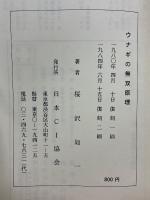 ウナギの無双原理
一九八〇年四月十日復刻一刷
一九八四年六月十五日復刻二刷
著者 桜沢如一
発行所 日本CI協会
東京都渋谷区大山町十一ー五
振替 東京〇ー一九四一二五
電話 〇三ー四六九ー七六三一(代)
800円